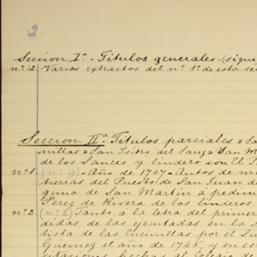 2
Seccion Iª - Titulos generales. (sigue
nº 12. Varios extractos del nº 1º de esta se
Seccion IIª Titulos parciales
millas San Isidro del Sauz San M
de los Sauces y lindero con El P
nº 1. (nº 1) - Año de 1707 - Autos de m
tierras del Puesto de San Juan d
gema de San Martin a pedim
Perez de Rivera de los linderos
nº 2. (nº 2) Tanto a la letra del primer
didas de las ejecutadas en la
dista de las Encinillas por el
Güemez el año de 1745, y en es